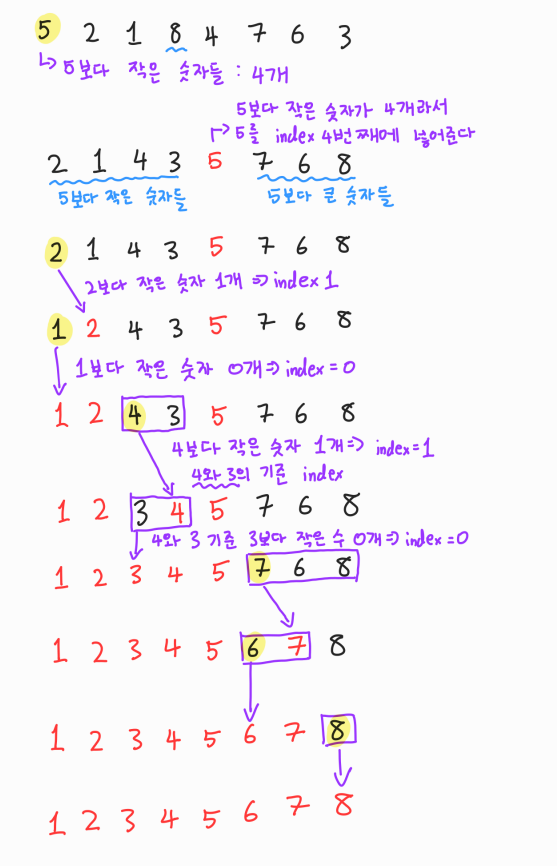 5 2 1 8 4 7 6 3
↳ 5보다 작은 숫자들 : 4개
5보다 작은 숫자가 4개라서
↱ 5를 index 4번째에 넣어준다
2 1 4 3 5 7 6 8
5보다 작은 숫자들 5보다 큰 숫자들
2 1 4 3 5 7 6 8
2보다 작은 숫자 1개 => index 1
1 2 4 3 5 7 6 8
1보다 작은 숫자 0개 => index = 0
1 2 4 3 5 7 6 8
4보다 작은 숫자 1개 => index = 1
4와 3의 기준 index
1 2 3 4 5 7 6 8
4와 3 기준 3보다 작은 수 0개 => index = 0
1 2 3 4 5 7 6 8
1 2 3 4 5 6 7 8
1 2 3 4 5 6 7 8
1 2 3 4 5 6 7 8